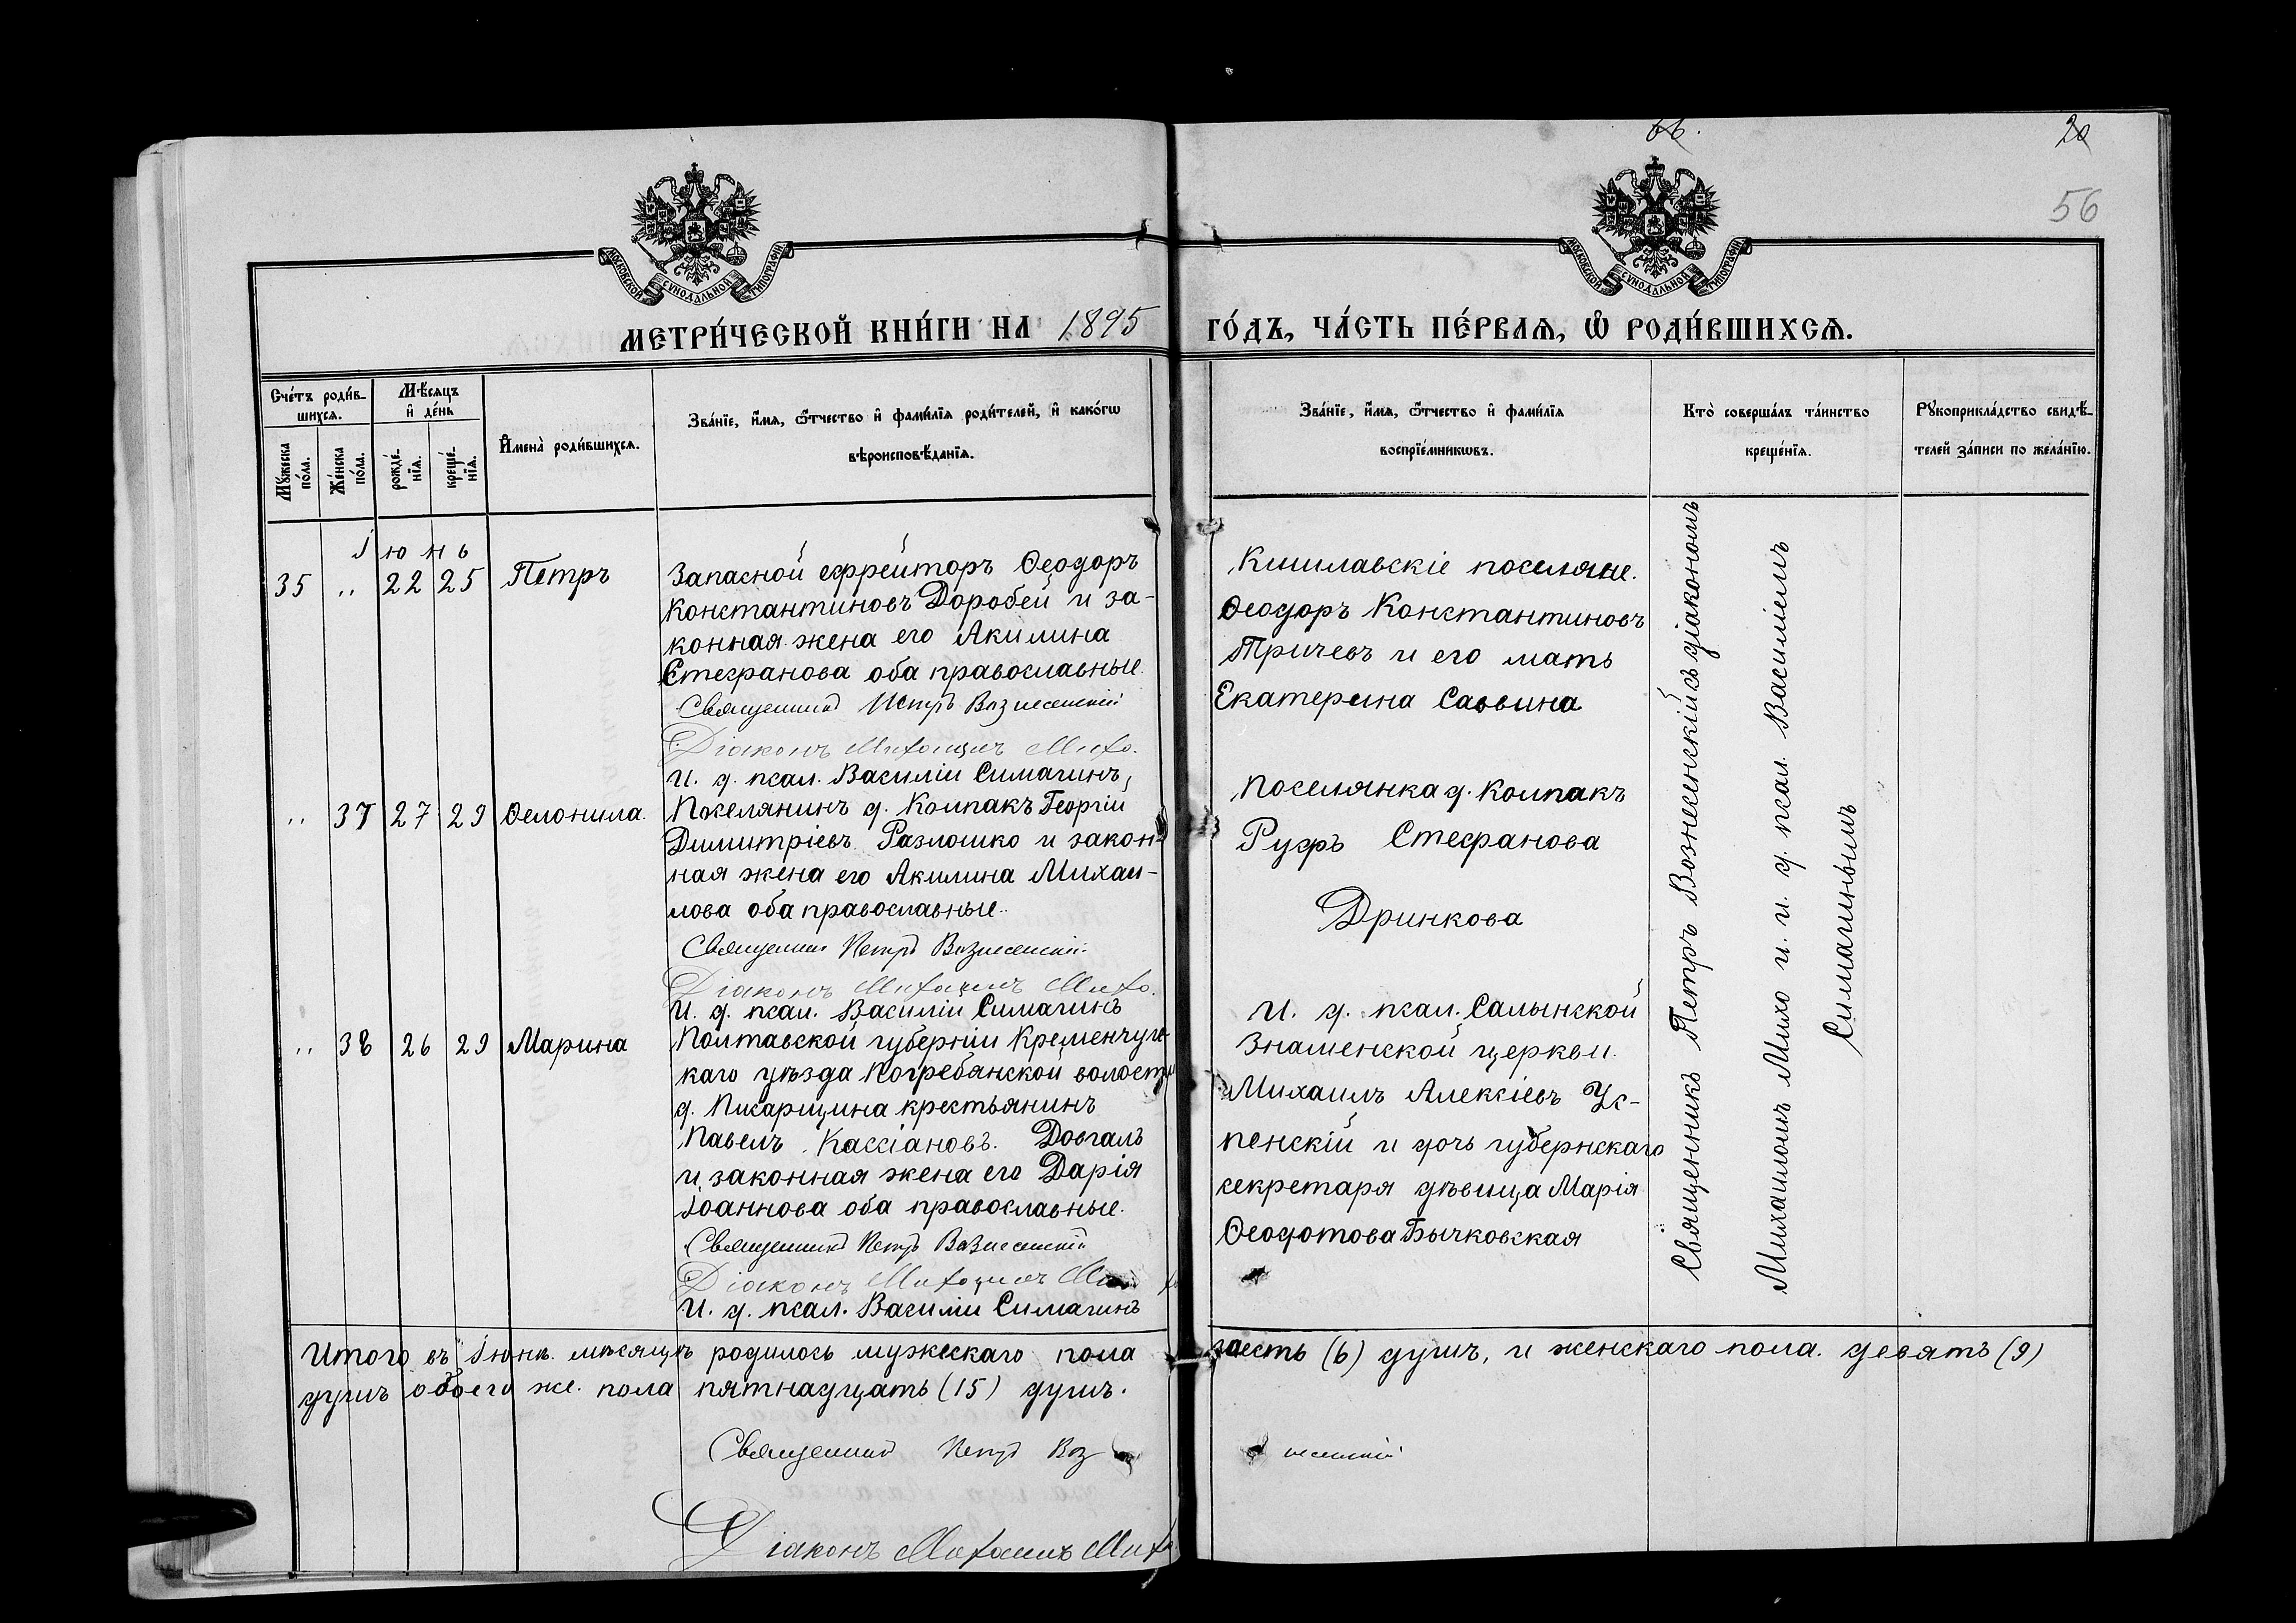 66.
20
56
МОСКОВСКОЙ СѴНОДАЛЬНОЙ ТИПОГРАФІИ
МОСКОВСКОЙ СѴНОДАЛЬНОЙ ТИПОГРАФІИ
МЕТРИ́ЧЕСКОЙ КНИ́ГИ НА 1895 ГО́ДЪ, ЧА́СТЬ ПЕ́РВАЯ, Ѿ РОДИ́ВШИХСЯ.
Сче́тъ роди́в-
шихся.
Мѣ́сяцъ
и҆ де́нь
Мꙋ́жеска по́ла.
Же́нска по́ла.
рожде́-нїя.
креще́-нїя.
И҆мена̀ роди́вшихся.
Зва́нїе, и҆́мя, ѻ҆́тчество и҆ фами́лїя роди́телей, и҆ како́гѡ
вѣроисповѣ́данїя.
Зва́нїе, и҆́мя, ѻ҆́тчество и҆ фами́лїя
воспрїе́мникѡвъ.
Кто̀ соверша́лъ та́инство
креще́нїя.
Рꙋкоприкла́дство свидѣ́-
телей за́писи по жела́нїю.
Іюнь
35 „ 22 25 Петръ
Запасной ефрейторъ Ѳеодоръ
Константиновъ Доробей и за-
конная жена его Акилина
Стефанова оба православные.
Священникъ Петръ Вознесенскій
Діаконъ Михаилъ Михо.
И. д. псал. Василій Симагинъ,
Кишлавскіе поселяне.
Ѳеодоръ Константиновъ
Тричевъ и его мать
Екатерина Саввина
„ 37 27 29 Ѳелонила.
Поселянинъ д. Колпакъ Георгій
Димитріевъ Разлошко и закон-
ная жена его Акилина Михаи-
лова оба православные.
Священникъ Петръ Вознесенскій
Діаконъ Михаилъ Михо.
И. д. псал. Василій Симагинъ
Поселянка д. Колпакъ
Руфь Стефанова
Дринкова
„ 38 26 29 Марина
Полтавской губерніи Кременчугс-
каго уѣзда Погребянской волости
д. Писарщина крестьянинъ
Павелъ Кассіановъ Довгаль
и законная жена его Дарія
Іоаннова оба православные.
Священникъ Петръ Вознесенскій
Діаконъ Михаилъ Михо
И. д. псал. Василій Симагинъ
И. д. псал. Салынской
Знаменской церкви.
Михаилъ Алексіевъ Ус-
пенскій и дочь губернскаго
секретаря дѣвица Марія
Ѳеодотова Бычковская
Священникъ Петръ Вознесенскій съ діакономъ
Михаиломъ Михо и и. д. псал. Василіемъ
Симагинымъ
Итого въ Іюнѣ мѣсяцѣ родилось мужескаго пола шесть (6) душъ, и женскаго пола девять (9)
душъ обоего же пола пятнадцать (15) душъ.
Священникъ Петръ Вознесенскій
Діаконъ Михаилъ Михо